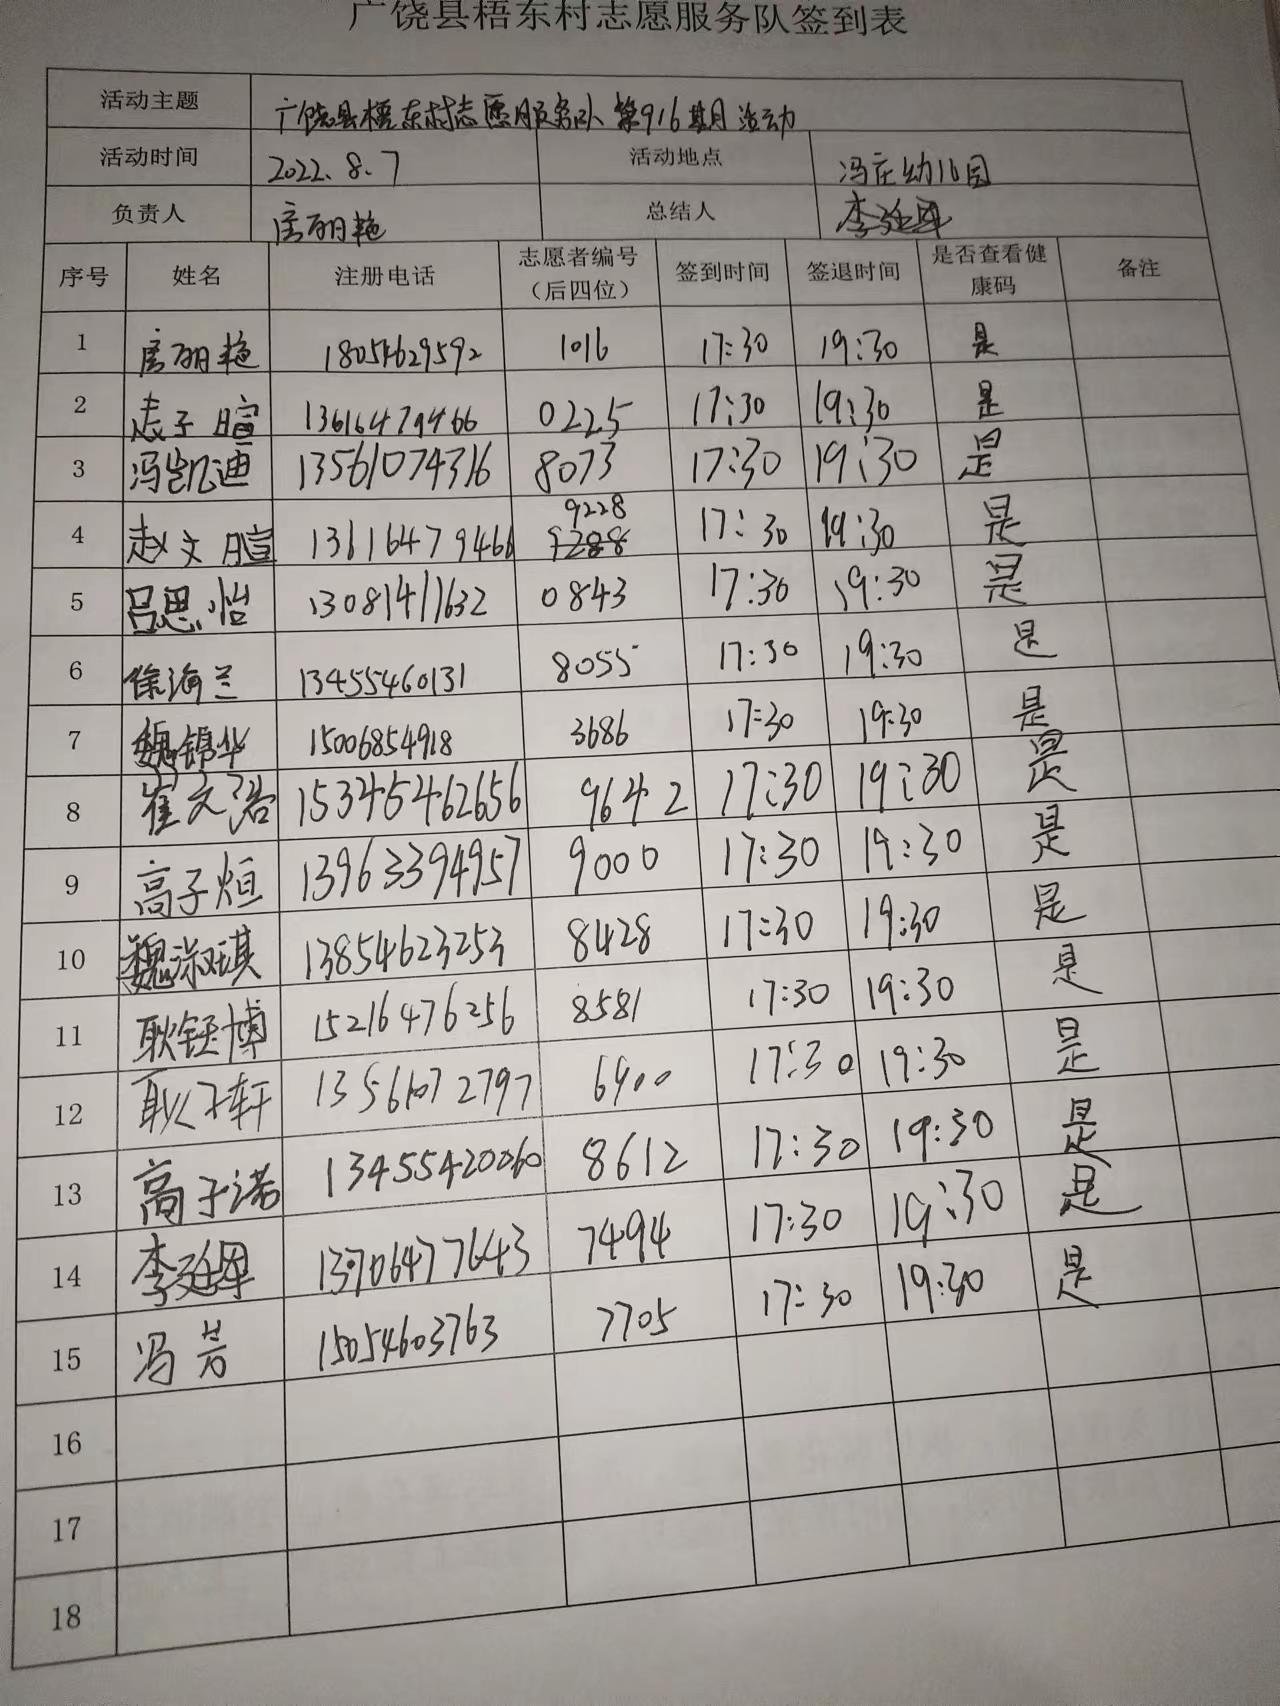 广饶县梧东村志愿服务队签到表
活动主题 广饶县梧东村志愿服务队第916期活动
活动时间 2022.8.7 活动地点 冯庄幼儿园
负责人 房丽艳 总结人 李延军
序号 姓名 注册电话 志愿者编号（后四位） 签到时间 签退时间 是否查看健康码 备注
1 房丽艳 18054629592 1016 17:30 19:30 是
2 子暄 13616479466 0225 17:30 19:30 是
3 冯凯迪 13561074316 8073 17:30 19:30 是
4 赵文暄 13616479466 9228 17:30 19:30 是
5 吕思怡 13081411632 0843 17:30 19:30 是
6 徐海兰 13455460131 8055 17:30 19:30 是
7 魏锦华 15006854918 3686 17:30 19:30 是
8 崔文浩 15345462656 9642 17:30 19:30 是
9 高子烜 13963394957 9000 17:30 19:30 是
10 魏淑琪 13854623253 8428 17:30 19:30 是
11 耿钰博 15216476256 8581 17:30 19:30 是
12 耿子轩 13561072797 6900 17:30 19:30 是
13 高子诺 13455420060 8612 17:30 19:30 是
14 李延军 13706477643 7494 17:30 19:30 是
15 冯芳 15054603763 7705 17:30 19:30 是
16
17
18